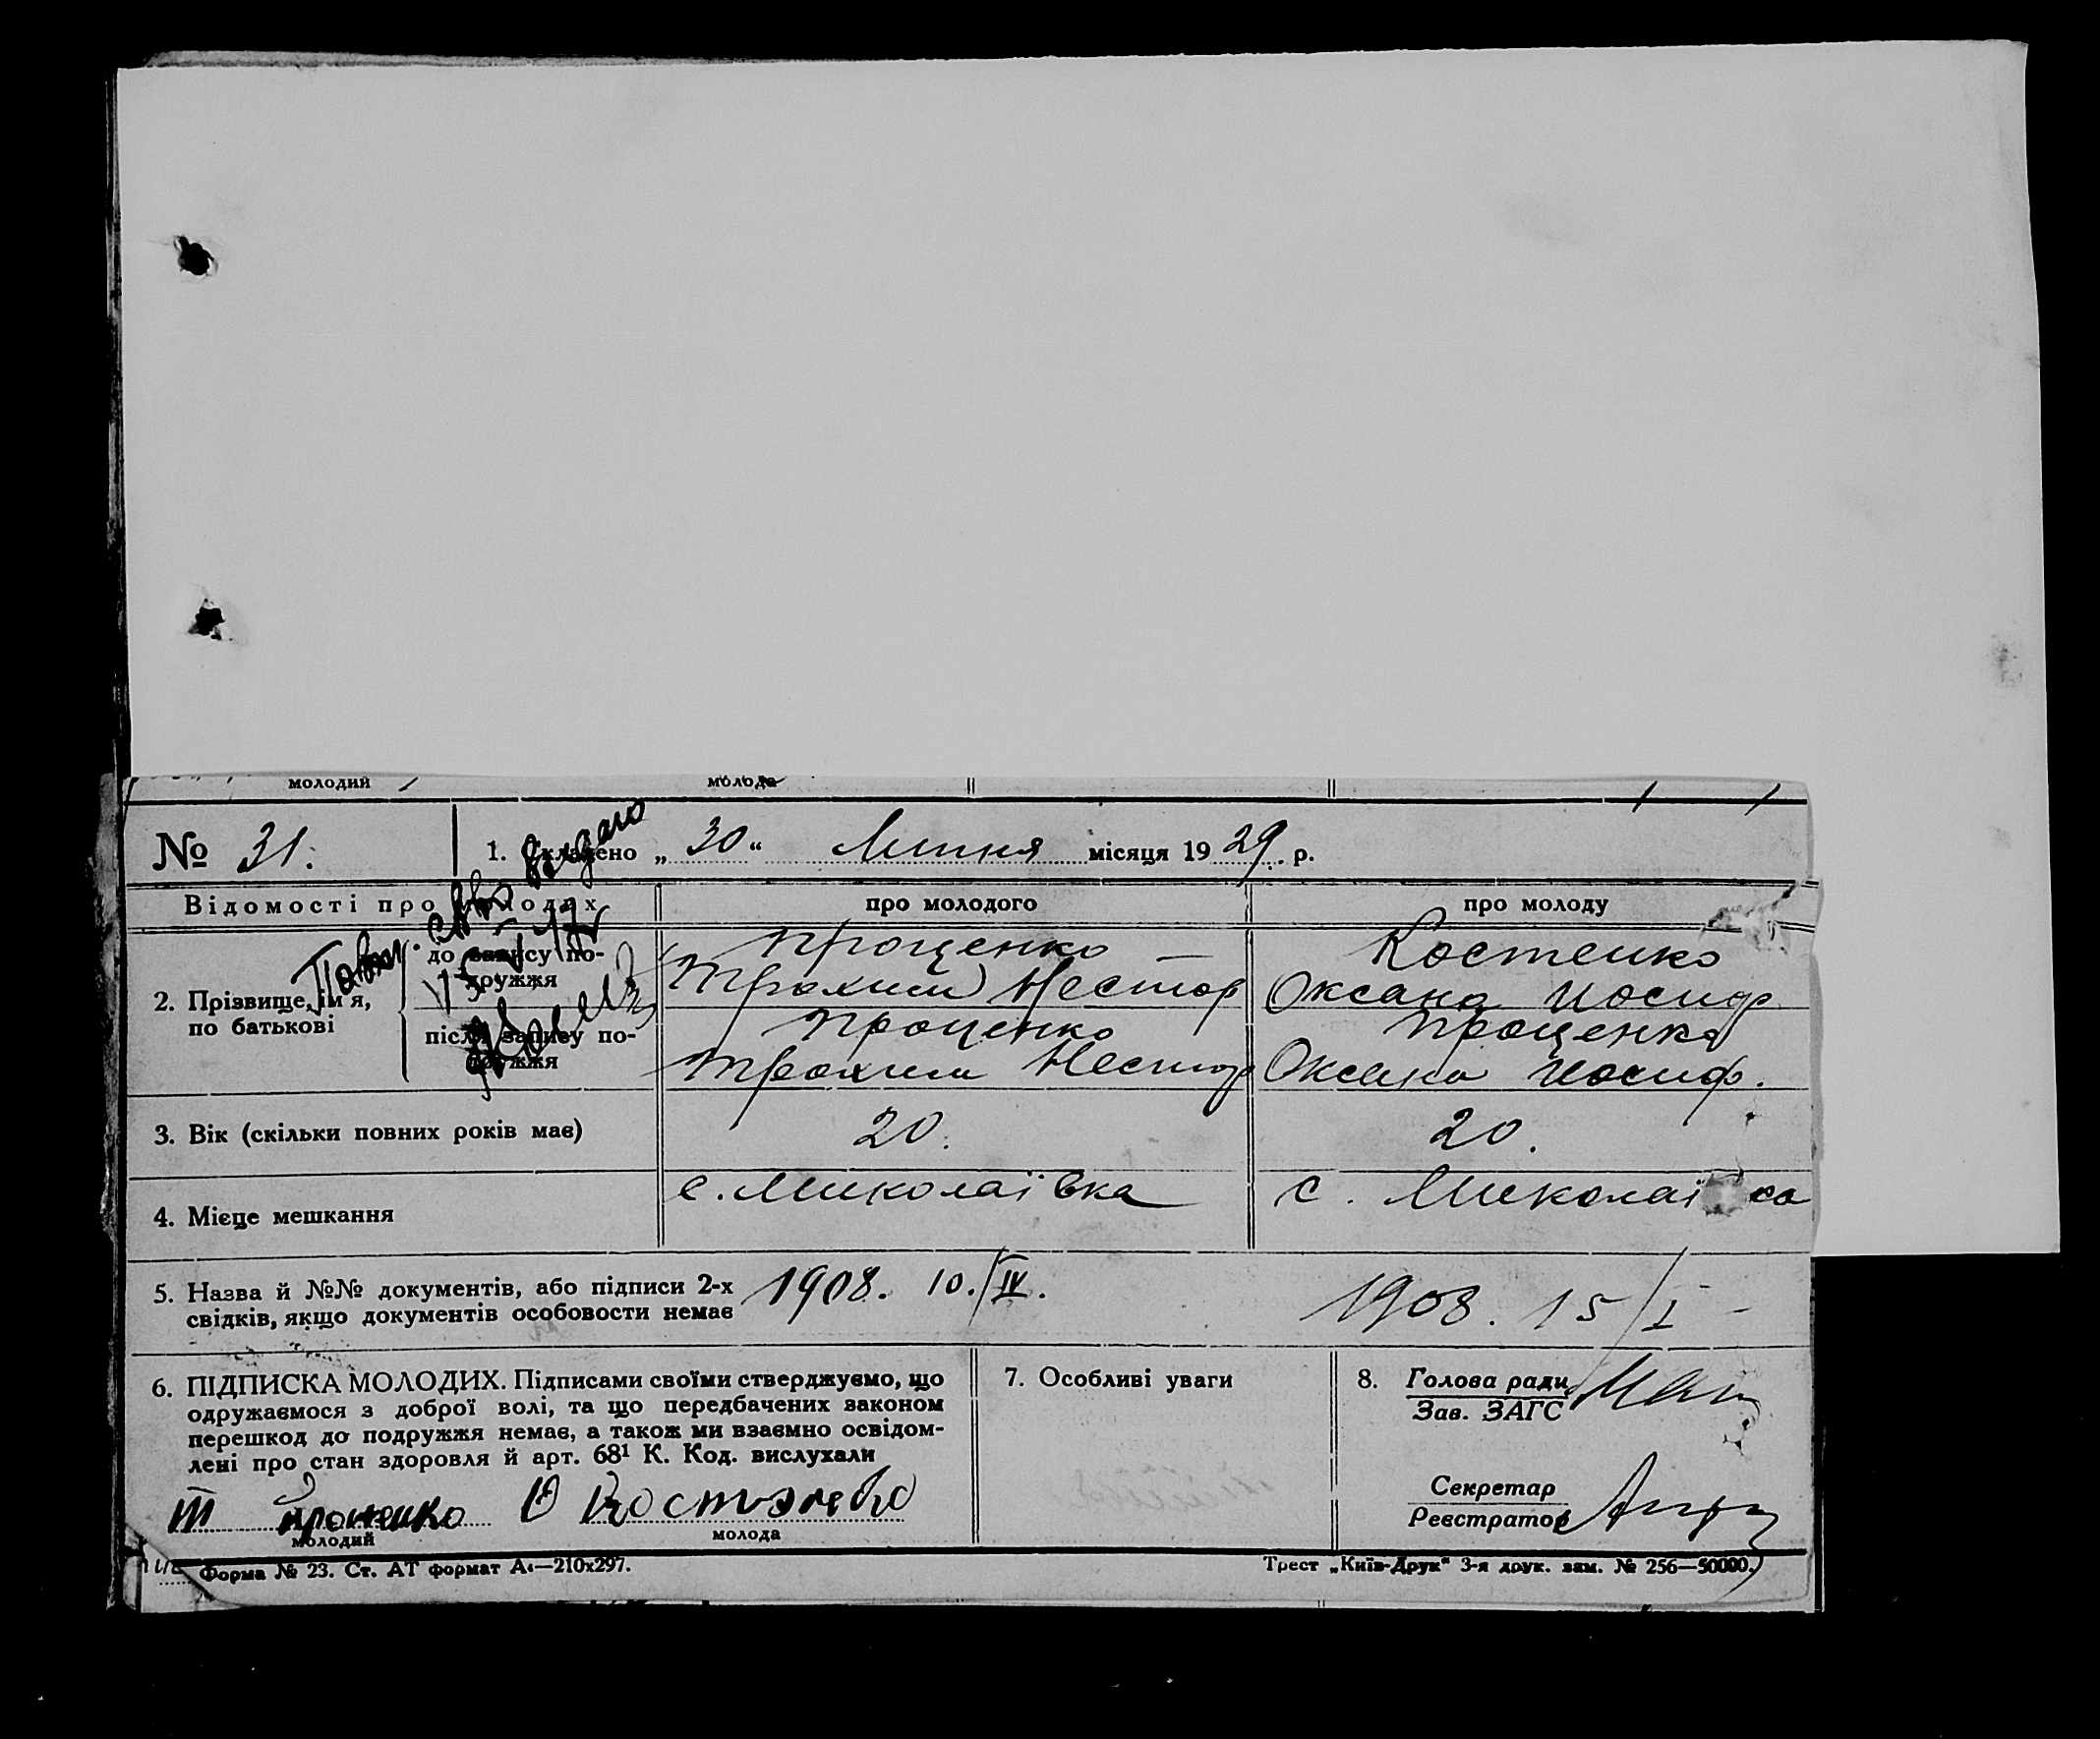 молодий молода
№ 31. 1. Складено „30“ Липня місяця 1929. р.
Відомості про молодих про молодого про молоду
Повтор. св-во видано
2. Прізвище, ім'я, по батькові
до запису подружжя
Проценко
Трохим Нестор
Костенко
Оксана Иосиф
після запису подружжя
Проценко
Трохим Нестор
Проценко
Оксана Иосиф.
3. Вік (скільки повних років має) 20. 20.
4. Місце мешкання с. Миколаївка с. Миколаї ка
5. Назва й №№ документів, або підписи 2-х
свідків, якщо документів особовости немає
1908. 10./IV. 1908. 15/I -
6. ПІДПИСКА МОЛОДИХ. Підписами своїми стверджуємо, що
одружаємося з доброї волі, та що передбачених законом
перешкод до подружжя немає, а також ми взаємно освідом-
лені про стан здоровля й арт. 68¹ К. Код. вислухали
Т Проценко О Костэнко
молодий молода
7. Особливі уваги
8. Голова ради
Зав. ЗАГС
Секретар
Реєстратор
Форма № 23. Ст. АТ формат А4—210х297. Трест „Київ-Друк“ 3-я друк. зам. № 256—50000.